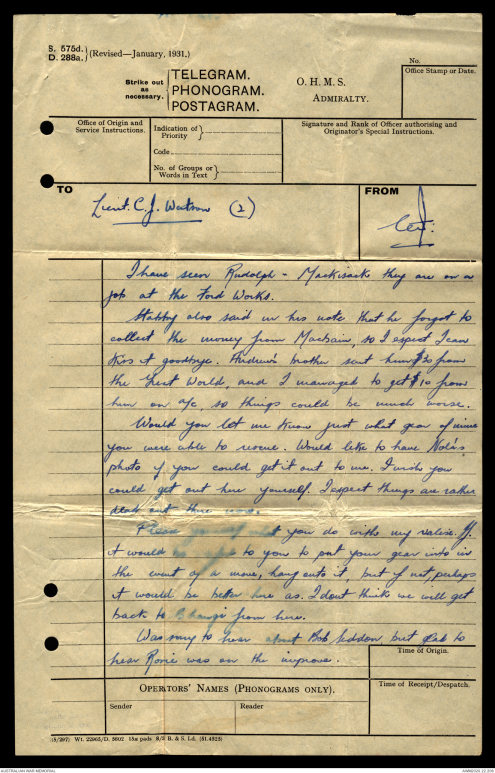 S. 575d.
D. 288a. (Revised—January, 1931.)
Strike out
as
necessary.
TELEGRAM.
PHONOGRAM.
POSTAGRAM.
O. H. M. S.
ADMIRALTY.
No.
Office Stamp or Date.
Office of Origin and
Service Instructions.
Indication of
Priority
Code
No. of Groups or
Words in Text
Signature and Rank of Officer authorising and
Originator's Special Instructions.
TO
FROM
Lieut. C. J. Watson (2)
I have seen Rudolph - Mackisack they are on a
job at the Ford Works.
also said in his note that he forgot to
collect the money from, so I expect I can
kiss it goodbye. brother sent him $20 from
the Great World, and I managed to get $10 from
him on a/c, so things could be much worse.
Would you let me know just what gear of mine
you were able to rescue. Would like to have Nola's
photo if you could get it out to me. I wish you
could get out here yourself. I expect things are rather
out there now.
Please what you do with my valise. If
it would be to you to put your gear into in
the event of a move, hang onto it, but if not, perhaps
it would be better here as I dont think we will get
back to Changi from here.
Was sorry to hear about Bob Seddon but glad to
hear was on the improve.
Time of Origin.
OPERATORS' NAMES (PHONOGRAMS ONLY).
Time of Receipt/Despatch.
Sender
Reader
(15/297) Wt. 22965/D. 5802 15m pads 8/3 B. & S. Ld. (51.4523)
AUSTRALIAN WAR MEMORIAL